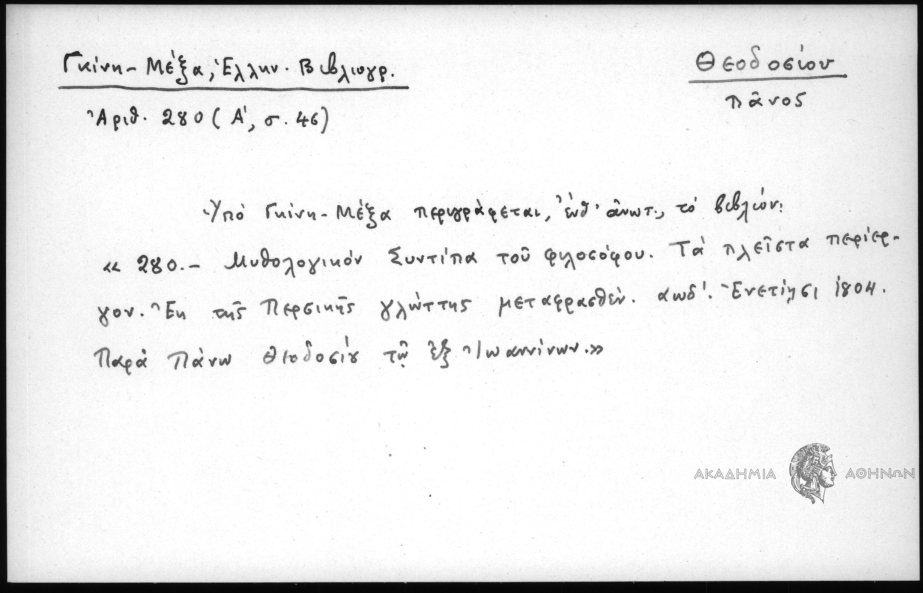 Γκίνη - Μέξα, Ἑλλην. Βιβλιογρ.
Ἀριθ. 280 (Α', σ. 46)
Θεοδοσίου
Πᾶνος
Ὑπό Γκίνη - Μέξα περιγράφεται, ἔνθ' ἀνωτ., τό βιβλίον:
« 280. — Μυθολογικόν Συντίπα τοῦ φιλοσόφου. Τά πλεῖστα περίερ-
γον. Ἐκ τῆς Περσικῆς γλώττης μεταφρασθέν. αωδ'. Ἐνετίῃσι 1804.
Παρά Πάνῳ Θεοδοσίου τῷ ἐξ Ἰωαννίνων.»
ΑΚΑΔΗΜΙΑ ΑΘΗΝΩΝ